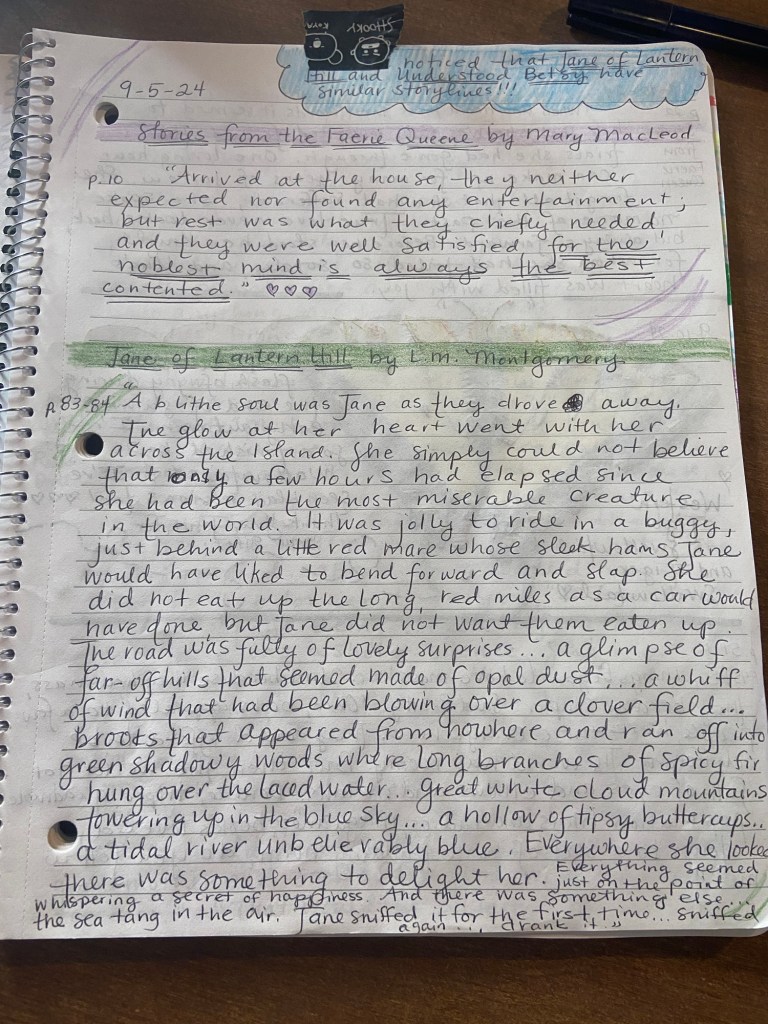 SHOOKY
KOYA
noticed that Jane of Lantern
Hill and Understood Betsy have
similar storylines!!!
9-5-24
Stories from the Faerie Queene by Mary MacLeod
p.10 "Arrived at the house, they neither
expected nor found any entertainment;
but rest was what they chiefly needed,
and they were well satisfied, for the
noblest mind is always the best
contented." ♡♡♡
Jane of Lantern Hill by L.M. Montgomery
p.83-84 "A blithe soul was Jane as they drove away.
The glow at her heart went with her
across the Island. She simply could not believe
that only a few hours had elapsed since
she had been the most miserable creature
in the world. It was jolly to ride in a buggy,
just behind a little red mare whose sleek hams Jane
would have liked to bend forward and slap. She
did not eat up the long, red miles as a car would
have done, but Jane did not want them eaten up.
The road was fully of lovely surprises... a glimpse of
far-off hills that seemed made of opal dust... a whiff
of wind that had been blowing over a clover field...
brooks that appeared from nowhere and ran off into
green shadowy woods where long branches of spicy fir
hung over the laced water... great white cloud mountains
towering up in the blue sky... a hollow of tipsy buttercups..
a tidal river unbelievably blue. Everywhere she looked
there was something to delight her. Everything seemed
just on the point of
whispering a secret of happiness. And there was something else...
the sea tang in the air. Jane sniffed it for the first time... sniffed
again... drank it."